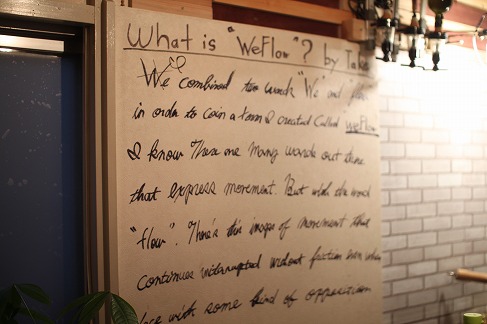 What is "WeFlow"? by Take
We combined two words "We" and flow
in order to coin a term I created called weFlow
I know There are many words out there
that express movement. But with the word
"flow". There's this image of movement that
continues without friction even when
face with some kind of opposition